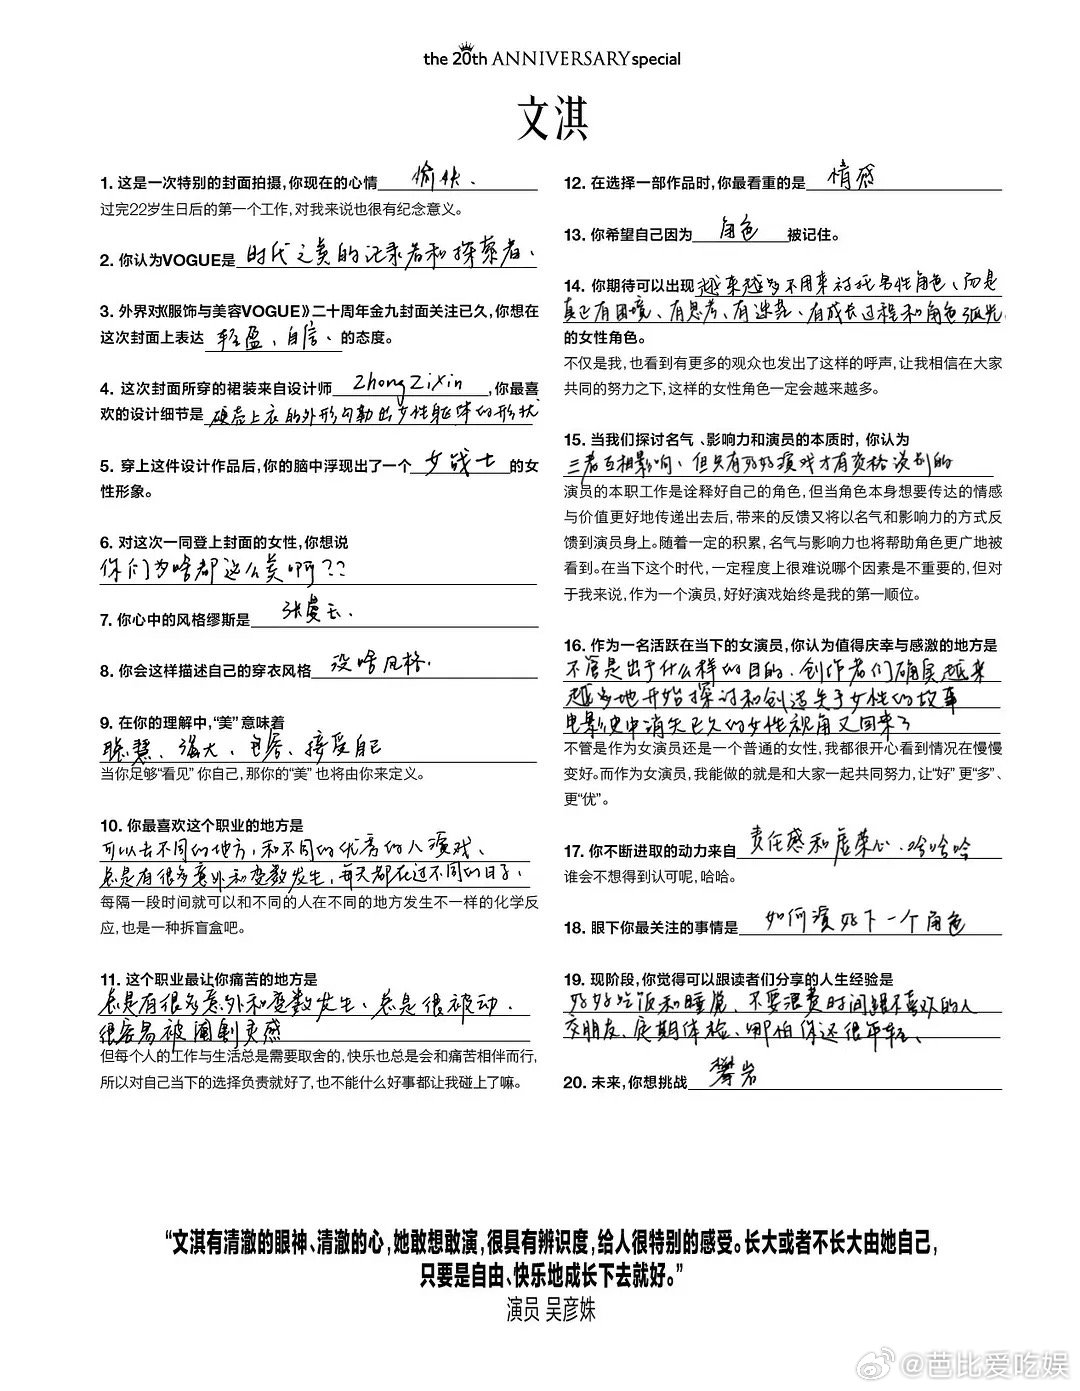 the 20th ANNIVERSARY special
文淇
1. 这是一次特别的封面拍摄,你现在的心情 愉快、
过完22岁生日后的第一个工作,对我来说也很有纪念意义。
2. 你认为VOGUE是 时代之美的记录者和探索者、
3. 外界对《服饰与美容VOGUE》二十周年金九封面关注已久,你想在
这次封面上表达 轻盈、自信、的态度。
4. 这次封面所穿的裙装来自设计师 Zhong Zixin ,你最喜
欢的设计细节是 硬壳上衣的外形勾勒出女性躯体的形状
5. 穿上这件设计作品后,你的脑中浮现出了一个 女战士 的女
性形象。
6. 对这次一同登上封面的女性,你想说
你们为啥都这么美啊??
7. 你心中的风格缪斯是 张曼玉.
8. 你会这样描述自己的穿衣风格 没啥风格.
9. 在你的理解中,“美”意味着
聪慧、强大、包容、接受自己
当你足够“看见”你自己,那你的“美”也将由你来定义。
10. 你最喜欢这个职业的地方是
可以去不同的地方,和不同的优秀的人演戏、
总是有很多意外和变数发生,每天都在过不同的日子.
每隔一段时间就可以和不同的人在不同的地方发生不一样的化学反
应,也是一种拆盲盒吧。
11. 这个职业最让你痛苦的地方是
总是有很多意外和变数发生、总是很被动、
很容易被阉割灵感
但每个人的工作与生活总是需要取舍的,快乐也总是会和痛苦相伴而行,
所以对自己当下的选择负责就好了,也不能什么好事都让我碰上了嘛。
12. 在选择一部作品时,你最看重的是 情感
13. 你希望自己因为 角色 被记住。
14. 你期待可以出现 越来越多不用来衬托男性角色,而是
真正有困境、有思考、有迷茫、有成长过程和角色弧光
的女性角色。
不仅是我,也看到有更多的观众也发出了这样的呼声,让我相信在大家
共同的努力之下,这样的女性角色一定会越来越多。
15. 当我们探讨名气、影响力和演员的本质时,你认为
三者互相影响、但只有好好演戏才有资格谈别的
演员的本职工作是诠释好自己的角色,但当角色本身想要传达的情感
与价值更好地传递出去后,带来的反馈又将以名气和影响力的方式反
馈到演员身上。随着一定的积累,名气与影响力也将帮助角色更广地被
看到。在当下这个时代,一定程度上很难说哪个因素是不重要的,但对
于我来说,作为一个演员,好好演戏始终是我的第一顺位。
16. 作为一名活跃在当下的女演员,你认为值得庆幸与感激的地方是
不管是出于什么样的目的、创作者们确实越来
越多地开始探讨和创造关于女性的故事
电影史中消失已久的女性视角又回来了
不管是作为女演员还是一个普通的女性,我都很开心看到情况在慢慢
变好。而作为女演员,我能做的就是和大家一起共同努力,让“好”更“多”、
更“优”。
17. 你不断进取的动力来自 责任感和虚荣心.哈哈哈
谁会不想得到认可呢,哈哈。
18. 眼下你最关注的事情是 如何演好下一个角色
19. 现阶段,你觉得可以跟读者们分享的人生经验是
好好吃饭和睡觉、不要浪费时间跟不喜欢的人
交朋友、定期体检、哪怕你还很年轻、
20. 未来,你想挑战 攀岩
“文淇有清澈的眼神、清澈的心,她敢想敢演,很具有辨识度,给人很特别的感受。长大或者不长大由她自己,
只要是自由、快乐地成长下去就好。”
演员 吴彦姝
@芭比爱吃娱